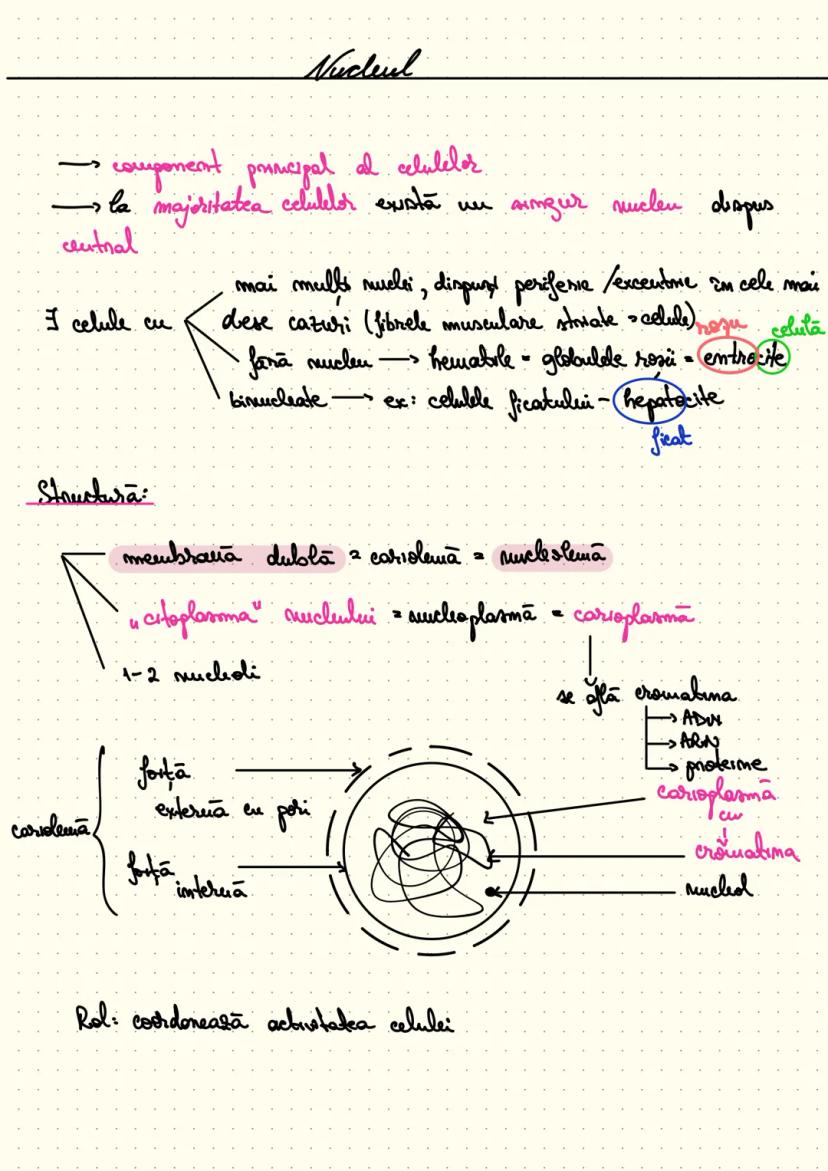 Nucleul
→ component principal al celulelor
→ la majoritatea celulelor există un singur nucleu dispus
central
mai mulți nuclei, dispuși periferic /excentric în cele mai
∃ celule cu
dese cazuri (fibrele musculare striate = celule)
roșu
celulă
fără nucleu → hematiile = globulele roșii = eritrocite
binucleate → ex: celulele ficatului - hepatocite
ficat
Structură:
membrană dublă = cariolemă = nucleolemă
"citoplasma" nucleului = nucleoplasmă = carioplasmă
1-2 nucleoli
se află cromatina
→ ADN
→ ARN
→ proteine
foiță
externă cu pori
cariolemă
foiță
internă
carioplasmă
cu
cromatina
nucleol
Rol: coordonează activitatea celulei